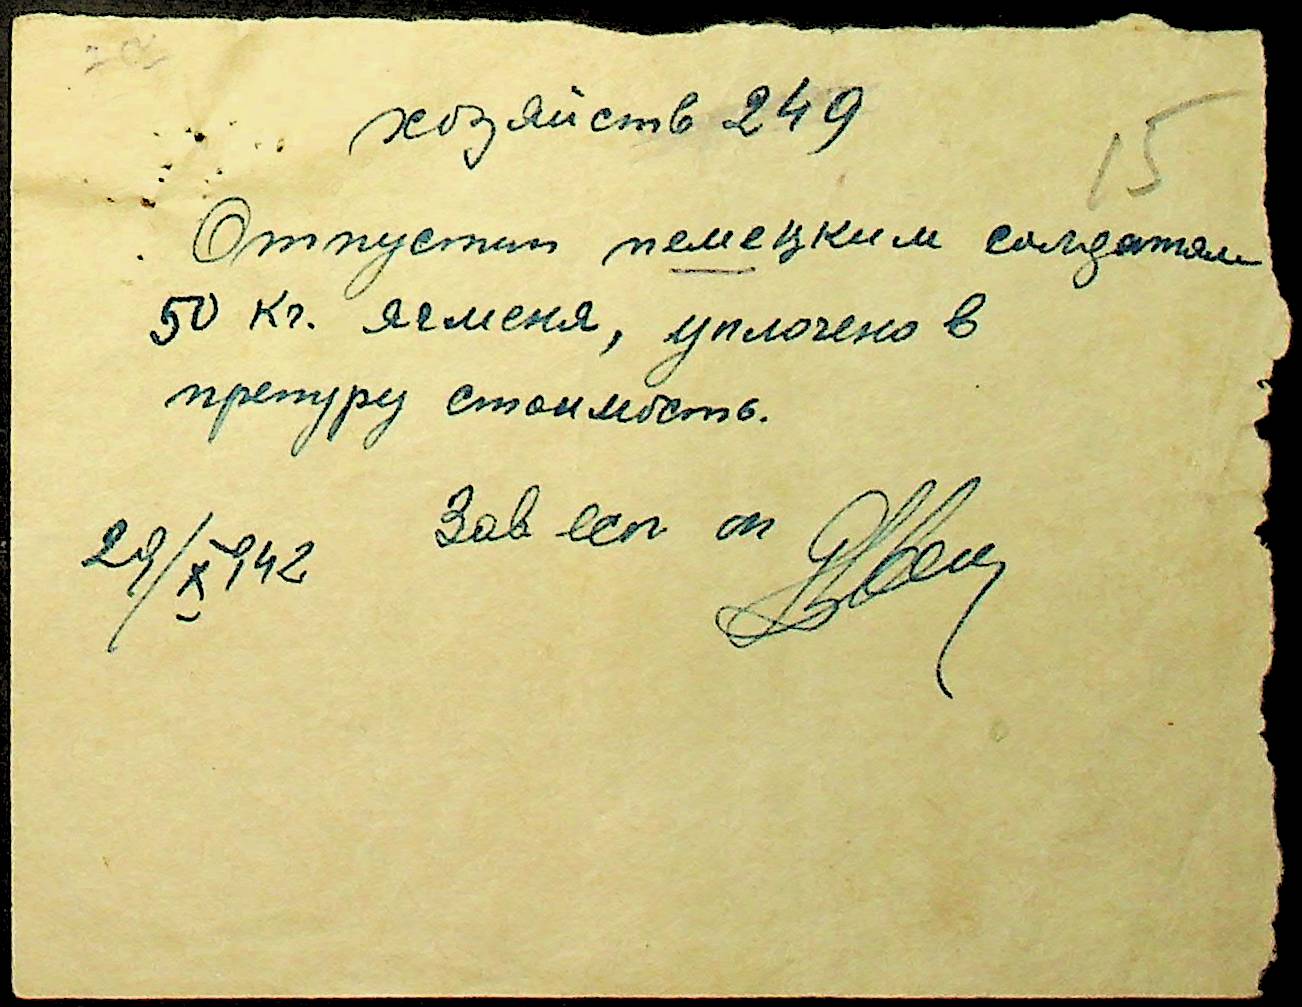 15
хозяйств 249
Отпустит немецким солдатам
50 кг. ячменя, уплочено в
препуру стоимость.
Зав
29/X 942